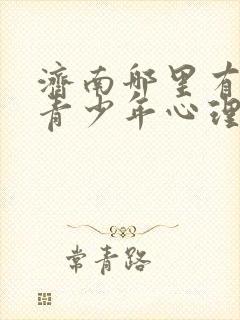 济南哪里有
青少年心理
常青路